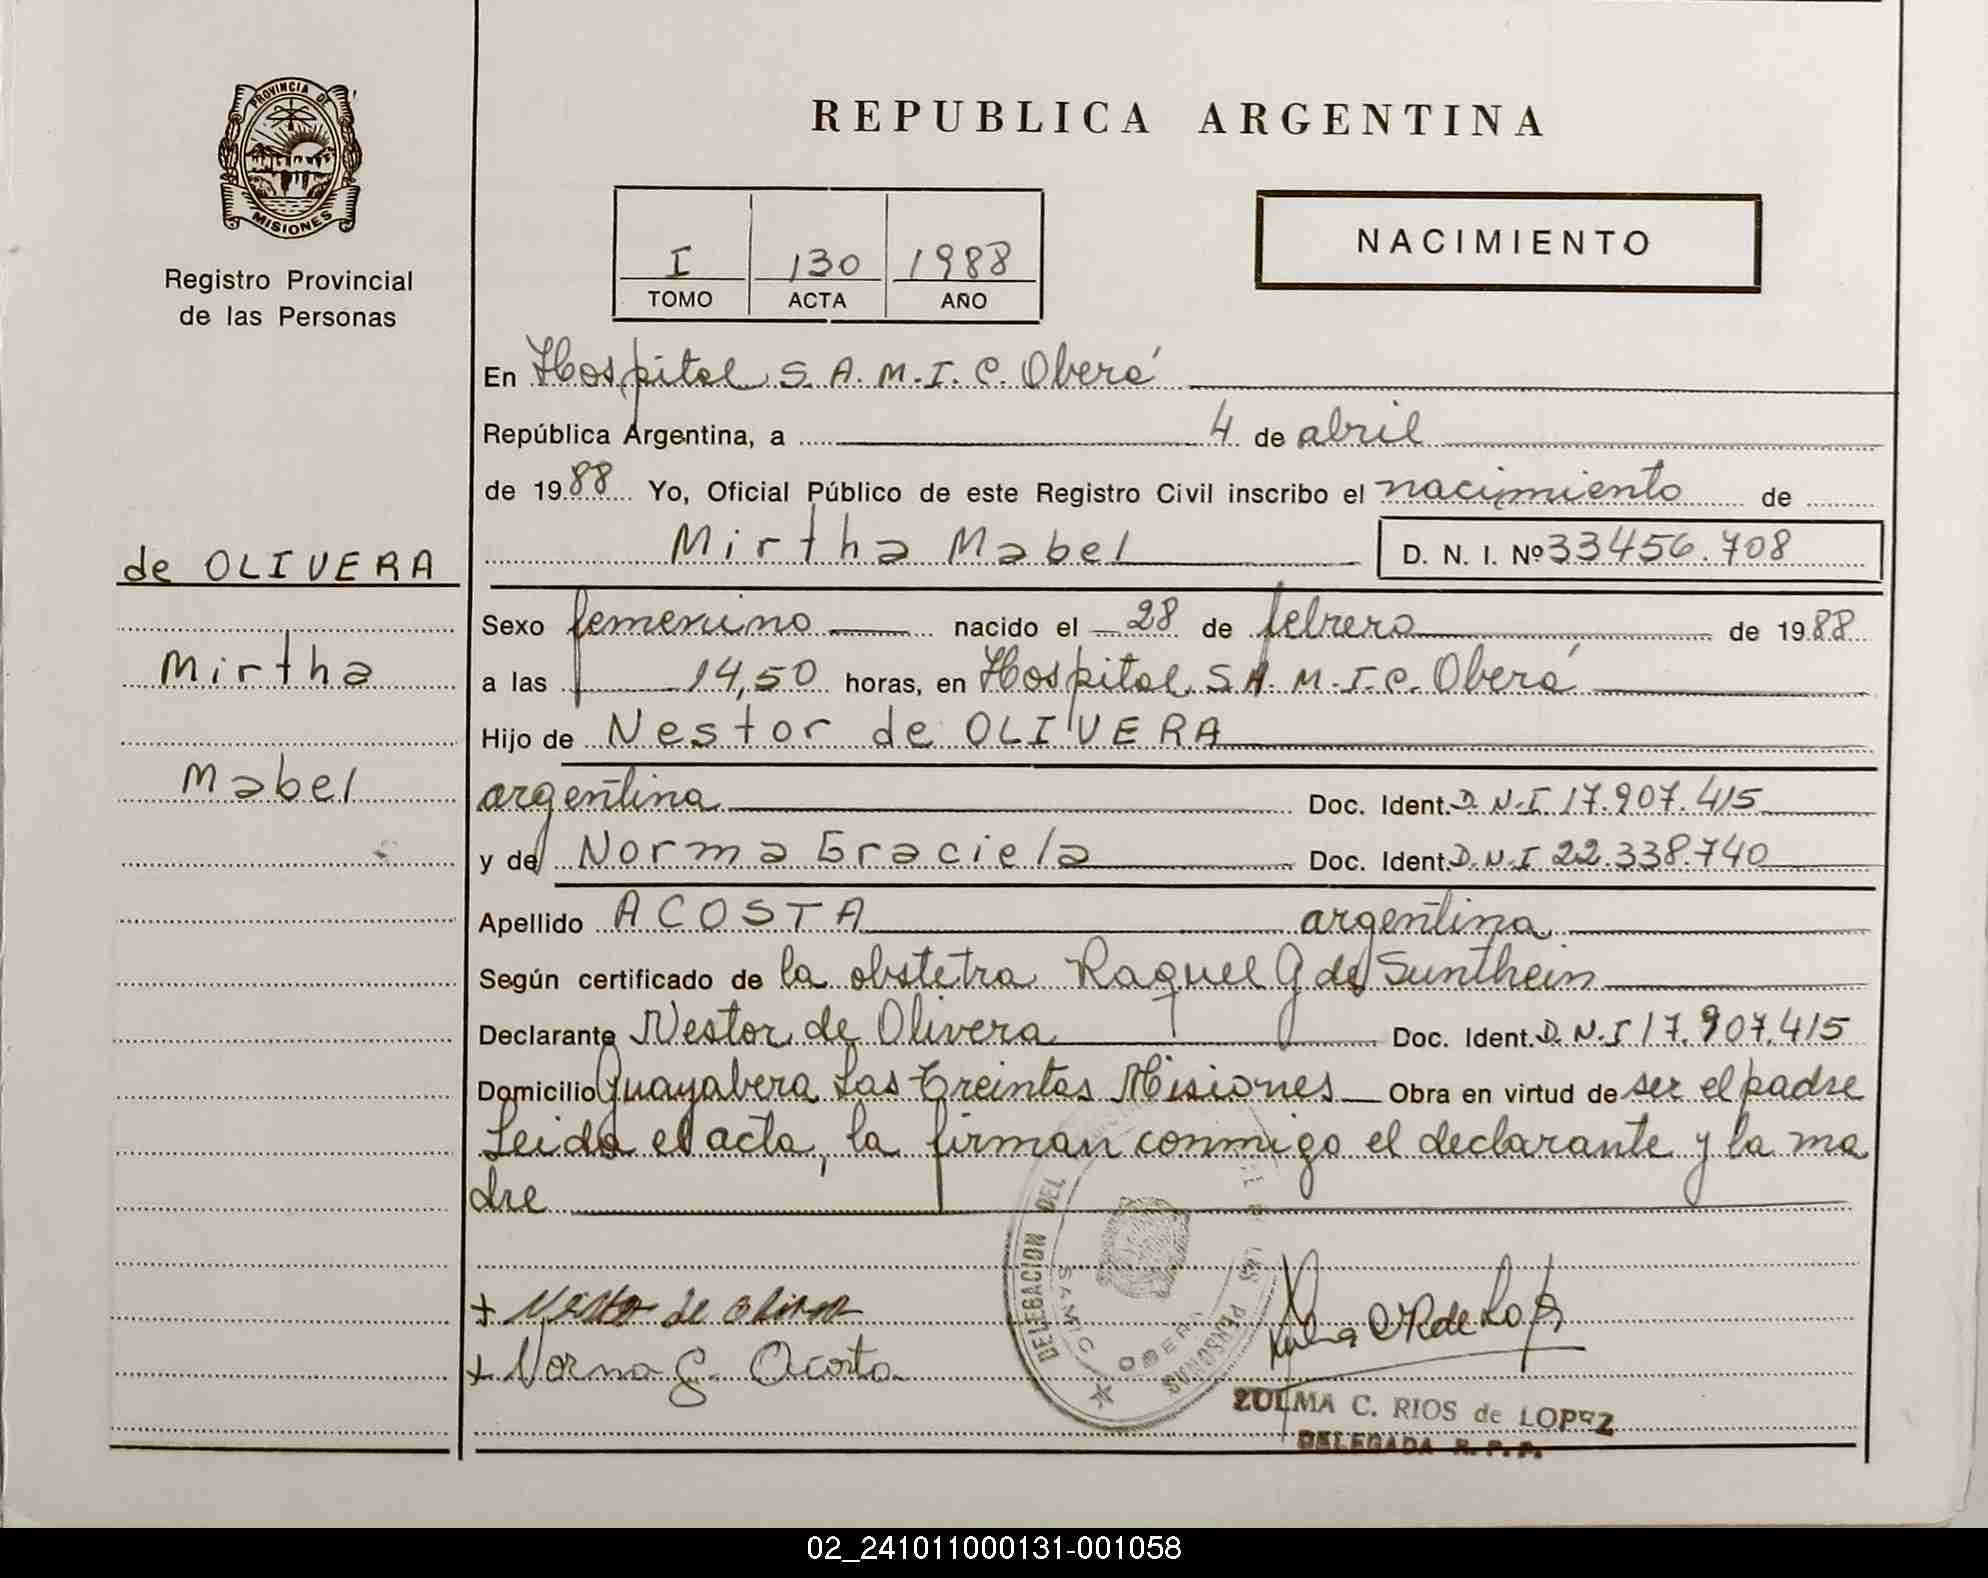 PROVINCIA DE
MISIONES
Registro Provincial
de las Personas
de OLIVERA
Mirtha
Mabel
REPUBLICA ARGENTINA
I 130 1988
TOMO ACTA AÑO
NACIMIENTO
En Hospital S.A.M.I.C. Oberá
República Argentina, a 4 de abril
de 1988 Yo, Oficial Público de este Registro Civil inscribo el nacimiento de
Mirtha Mabel D. N. I. Nº 33456.708
Sexo femenino nacido el 28 de febrero de 1988
a las 14,50 horas, en Hospital S.A.M.I.C. Oberá
Hijo de Nestor de OLIVERA
argentina Doc. Ident. D.N.I 17.907.415
y de Norma Graciela Doc. Ident. D.N.I 22.338.740
Apellido ACOSTA argentina
Según certificado de la obstetra Raquel G de Sunthein
Declarante Nestor de Olivera Doc. Ident. D.N.I 17.907.415
Domicilio Guayabera Las Treintas Misiones Obra en virtud de ser el padre
Leida el acta, la firman conmigo el declarante y la ma
dre
DELEGACION DEL
LAS PERSONAS
SAMIC OBERA
+ Nestor de Olivera
+ Norma G. Acosta
Zulma C R de Lopez
ZULMA C. RIOS de LOPEZ
DELEGADA R. P. P.
02_241011000131-001058